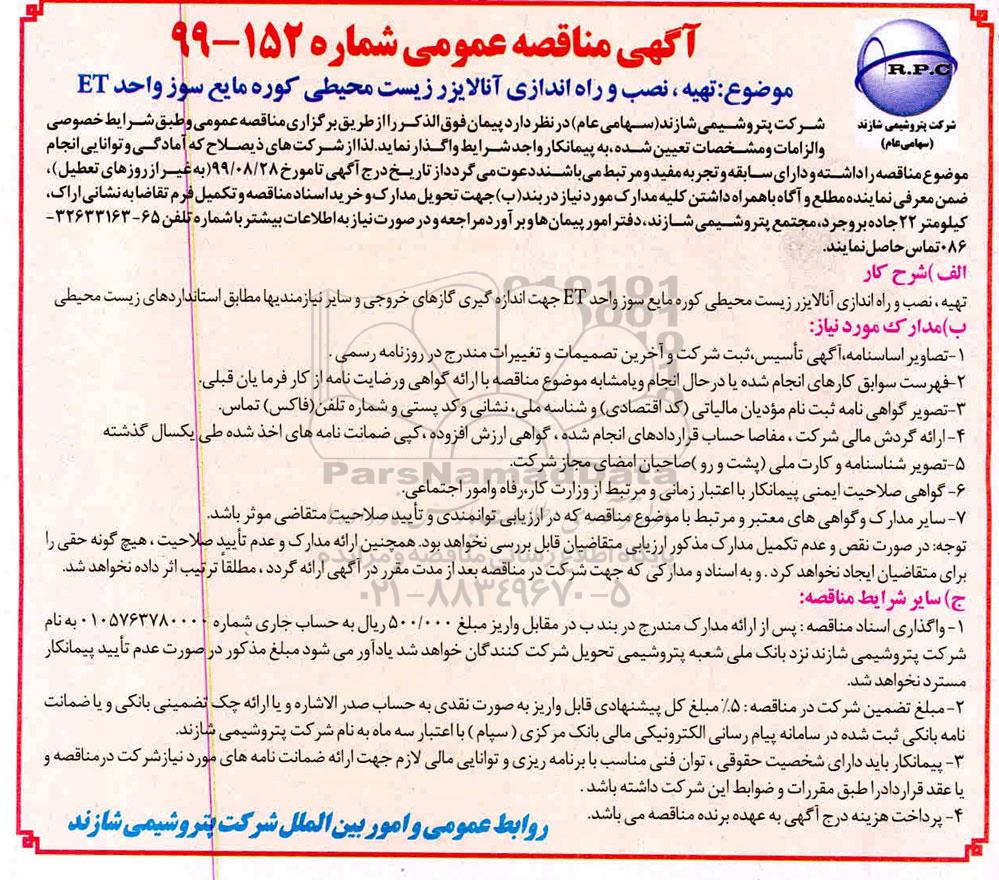 آگهی مناقصه عمومی شماره ۱۵۲-۹۹
R.P.C
شرکت پتروشیمی شازند
(سهامی عام)
موضوع:تهیه ، نصب و راه اندازی آنالایزر زیست محیطی کوره مایع سوز واحد ET
شرکت پتروشیمی شازند(سهامی عام)در نظر دارد پیمان فوق الذکر را از طریق برگزاری مناقصه عمومی و طبق شرایط خصوصی
و الزامات و مشخصات تعیین شده ،به پیمانکار واجد شرایط واگذار نماید.لذا از شرکت های ذیصلاح که آمادگی و توانایی انجام
موضوع مناقصه را داشته و دارای سابقه و تجربه مفید و مرتبط می باشند دعوت می گردد از تاریخ درج آگهی تا مورخ ۹۹/۰۸/۲۸(به غیر از روزهای تعطیل)،
ضمن معرفی نماینده مطلع و آگاه با همراه داشتن کلیه مدارک مورد نیاز در بند(ب)جهت تحویل مدارک و خرید اسناد مناقصه و تکمیل فرم تقاضا به نشانی اراک،
کیلومتر ۲۲ جاده بروجرد، مجتمع پتروشیمی شازند، دفتر امور پیمان ها و برآورد مراجعه و در صورت نیاز به اطلاعات بیشتر با شماره تلفن ۶۵-۳۲۶۳۳۱۶۳-
۰۸۶ تماس حاصل نمایند.
الف )شرح کار
تهیه ، نصب و راه اندازی آنالایزر زیست محیطی کوره مایع سوز واحد ET جهت اندازه گیری گازهای خروجی و سایر نیازمندیها مطابق استانداردهای زیست محیطی
ب)مدارک مورد نیاز:
۱-تصاویر اساسنامه،آگهی تأسیس،ثبت شرکت و آخرین تصمیمات و تغییرات مندرج در روزنامه رسمی .
۲-فهرست سوابق کارهای انجام شده یا درحال انجام ویامشابه موضوع مناقصه با ارائه گواهی ورضایت نامه از کار فرما یان قبلی.
۳-تصویر گواهی نامه ثبت نام مؤدیان مالیاتی (کد اقتصادی) و شناسه ملی، نشانی وکد پستی و شماره تلفن(فاکس) تماس.
۴-ارائه گردش مالی شرکت ، مفاصا حساب قراردادهای انجام شده ، گواهی ارزش افزوده ،کپی ضمانت نامه های اخذ شده طی یکسال گذشته
۵-تصویر شناسنامه و کارت ملی (پشت و رو )صاحبان امضای مجاز شرکت.
ParsNamadData
۶- گواهی صلاحیت ایمنی پیمانکار با اعتبار زمانی و مرتبط از وزارت کار،رفاه وامور اجتماعی.
۷- سایر مدارک وگواهی های معتبر و مرتبط با موضوع مناقصه که در ارزیابی توانمندی و تأیید صلاحیت متقاضی موثر باشد.
توجه: در صورت نقص و عدم تکمیل مدارک مذکور ارزیابی متقاضیان قابل بررسی نخواهد بود. همچنین ارائه مدارک و عدم تأیید صلاحیت ، هیچ گونه حقی را
پایگاه اطلاع رسانی مناقصه و مزایده
برای متقاضیان ایجاد نخواهد کرد . و به اسناد و مدارکی که جهت شرکت در مناقصه بعد از مدت مقرر در آگهی ارائه گردد ، مطلقاً ترتیب اثر داده نخواهد شد.
۰۲۱-۸۸۳۴۹۶۷۰-۵
ج) سایر شرایط مناقصه:
۱- واگذاری اسناد مناقصه : پس از ارائه مدارک مندرج در بند ب در مقابل واریز مبلغ ۵۰۰/۰۰۰ ریال به حساب جاری شماره ۰۱۰۵۷۶۳۷۸۰۰۰۰ به نام
شرکت پتروشیمی شازند نزد بانک ملی شعبه پتروشیمی تحویل شرکت کنندگان خواهد شد یادآور می شود مبلغ مذکور در صورت عدم تأیید پیمانکار
مسترد نخواهد شد.
۲- مبلغ تضمین شرکت در مناقصه : ۵٪ مبلغ کل پیشنهادی قابل واریز به صورت نقدی به حساب صدر الاشاره و یا ارائه چک تضمینی بانکی و یا ضمانت
نامه بانکی ثبت شده در سامانه پیام رسانی الکترونیکی مالی بانک مرکزی ( سپام ) با اعتبار سه ماه به نام شرکت پتروشیمی شازند.
۳- پیمانکار باید دارای شخصیت حقوقی ، توان فنی مناسب با برنامه ریزی و توانایی مالی لازم جهت ارائه ضمانت نامه های مورد نیاز شرکت درمناقصه و
یا عقد قراردادرا طبق مقررات و ضوابط این شرکت داشته باشد .
۴- پرداخت هزینه درج آگهی به عهده برنده مناقصه می باشد.
روابط عمومی و امور بین الملل شرکت پتروشیمی شازند